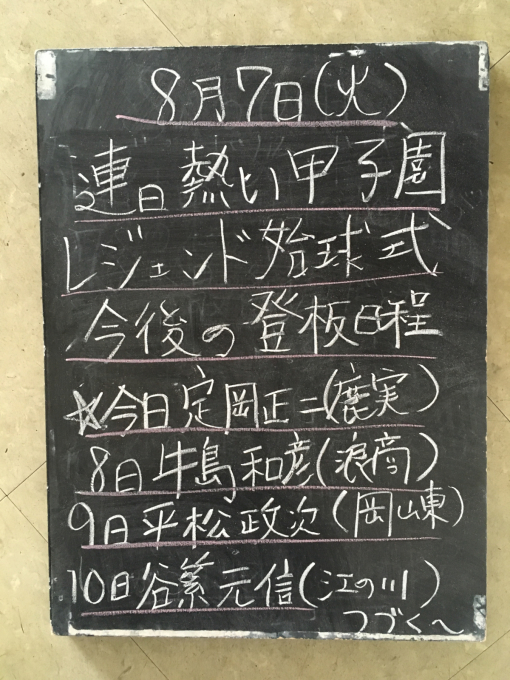 8月7日(火)
連日熱い甲子園
レジェンド始球式
今後の登板日程
☆今日定岡正二(鹿実)
8日牛島和彦(浪商)
9日平松政次(岡山東)
10日谷繁元信(江の川)
つづく〜